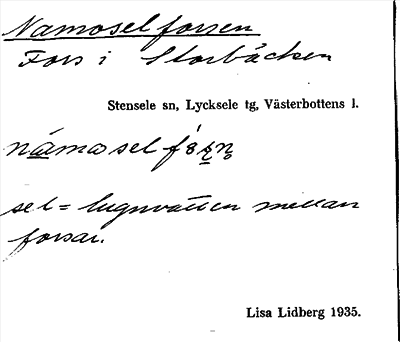 Namoselforsen
Fors i Storbäcken
Stensele sn, Lycksele tg, Västerbottens l.
sel = lugnvatten mellan
forsar.
Lisa Lidberg 1935.